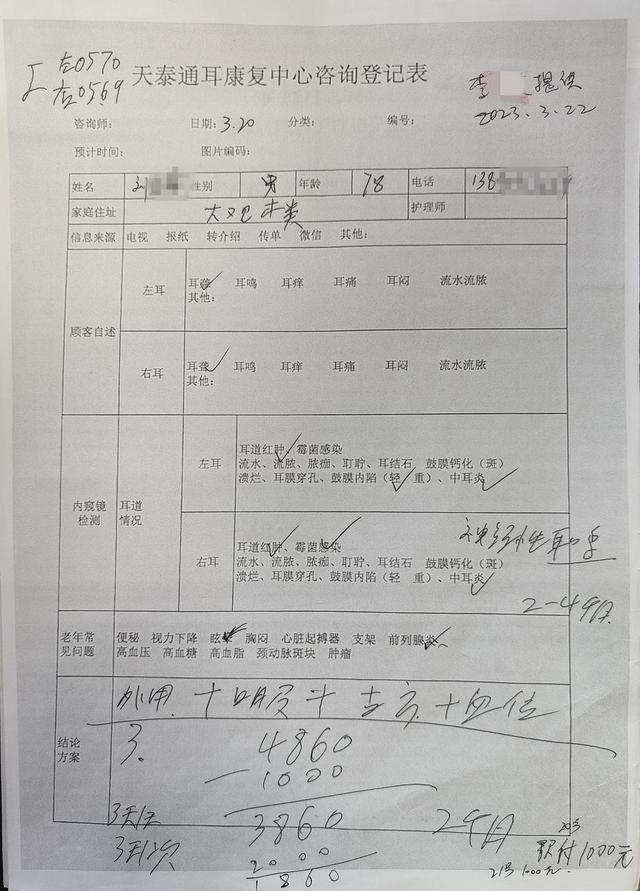 右0570
左0569
天泰通耳康复中心咨询登记表
李 提供
2023.3.22
咨询师: 日期: 3.20 分类: 编号:
预计时间: 图片编码:
姓名 刘 性别 男 年龄 78 电话 138
家庭住址 护理师
信息来源 电视 报纸 转介绍 传单 微信 其他:
顾客自述
左耳
耳聋 耳鸣 耳痒 耳痛 耳闷 流水流脓
其他:
右耳
耳聋 耳鸣 耳痒 耳痛 耳闷 流水流脓
其他:
内窥镜检测
耳道情况
左耳
耳道红肿、霉菌感染
流水、流脓、脓痂、耵聍、耳结石 鼓膜钙化（斑）
溃烂、耳膜穿孔、鼓膜内陷（轻 重）、中耳炎
右耳
耳道红肿、霉菌感染
流水、流脓、脓痂、耵聍、耳结石 鼓膜钙化（斑）
溃烂、耳膜穿孔、鼓膜内陷（轻 重）、中耳炎
神经性耳聋
2-4个月
老年常见问题
便秘 视力下降 眩晕 胸闷 心脏起搏器 支架 前列腺炎
高血压 高血糖 高血脂 颈动脉斑块 肿瘤
结论方案
外用 + + + 穴位
3. 4860
-1000
3860 2个月
3天1次
2000
1860
20号
现付1000元
21号1000元